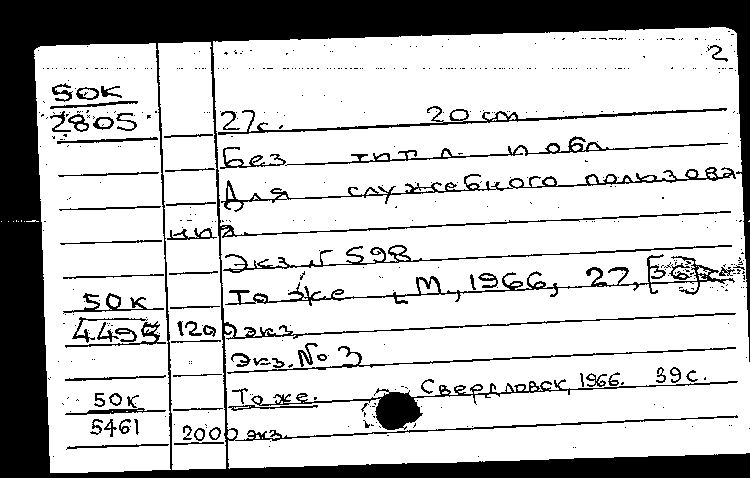 2
50К
2805 27с. 20 cm
Без тит л. и обл.
Для служебного пользова-
ния.
Экз. № 598
50К То же М., 1966, 27, [36] с.
4495 1200 экз.
Экз. № 3
50К То же. Свердловск, 1966. 39с.
5461 2000 экз.